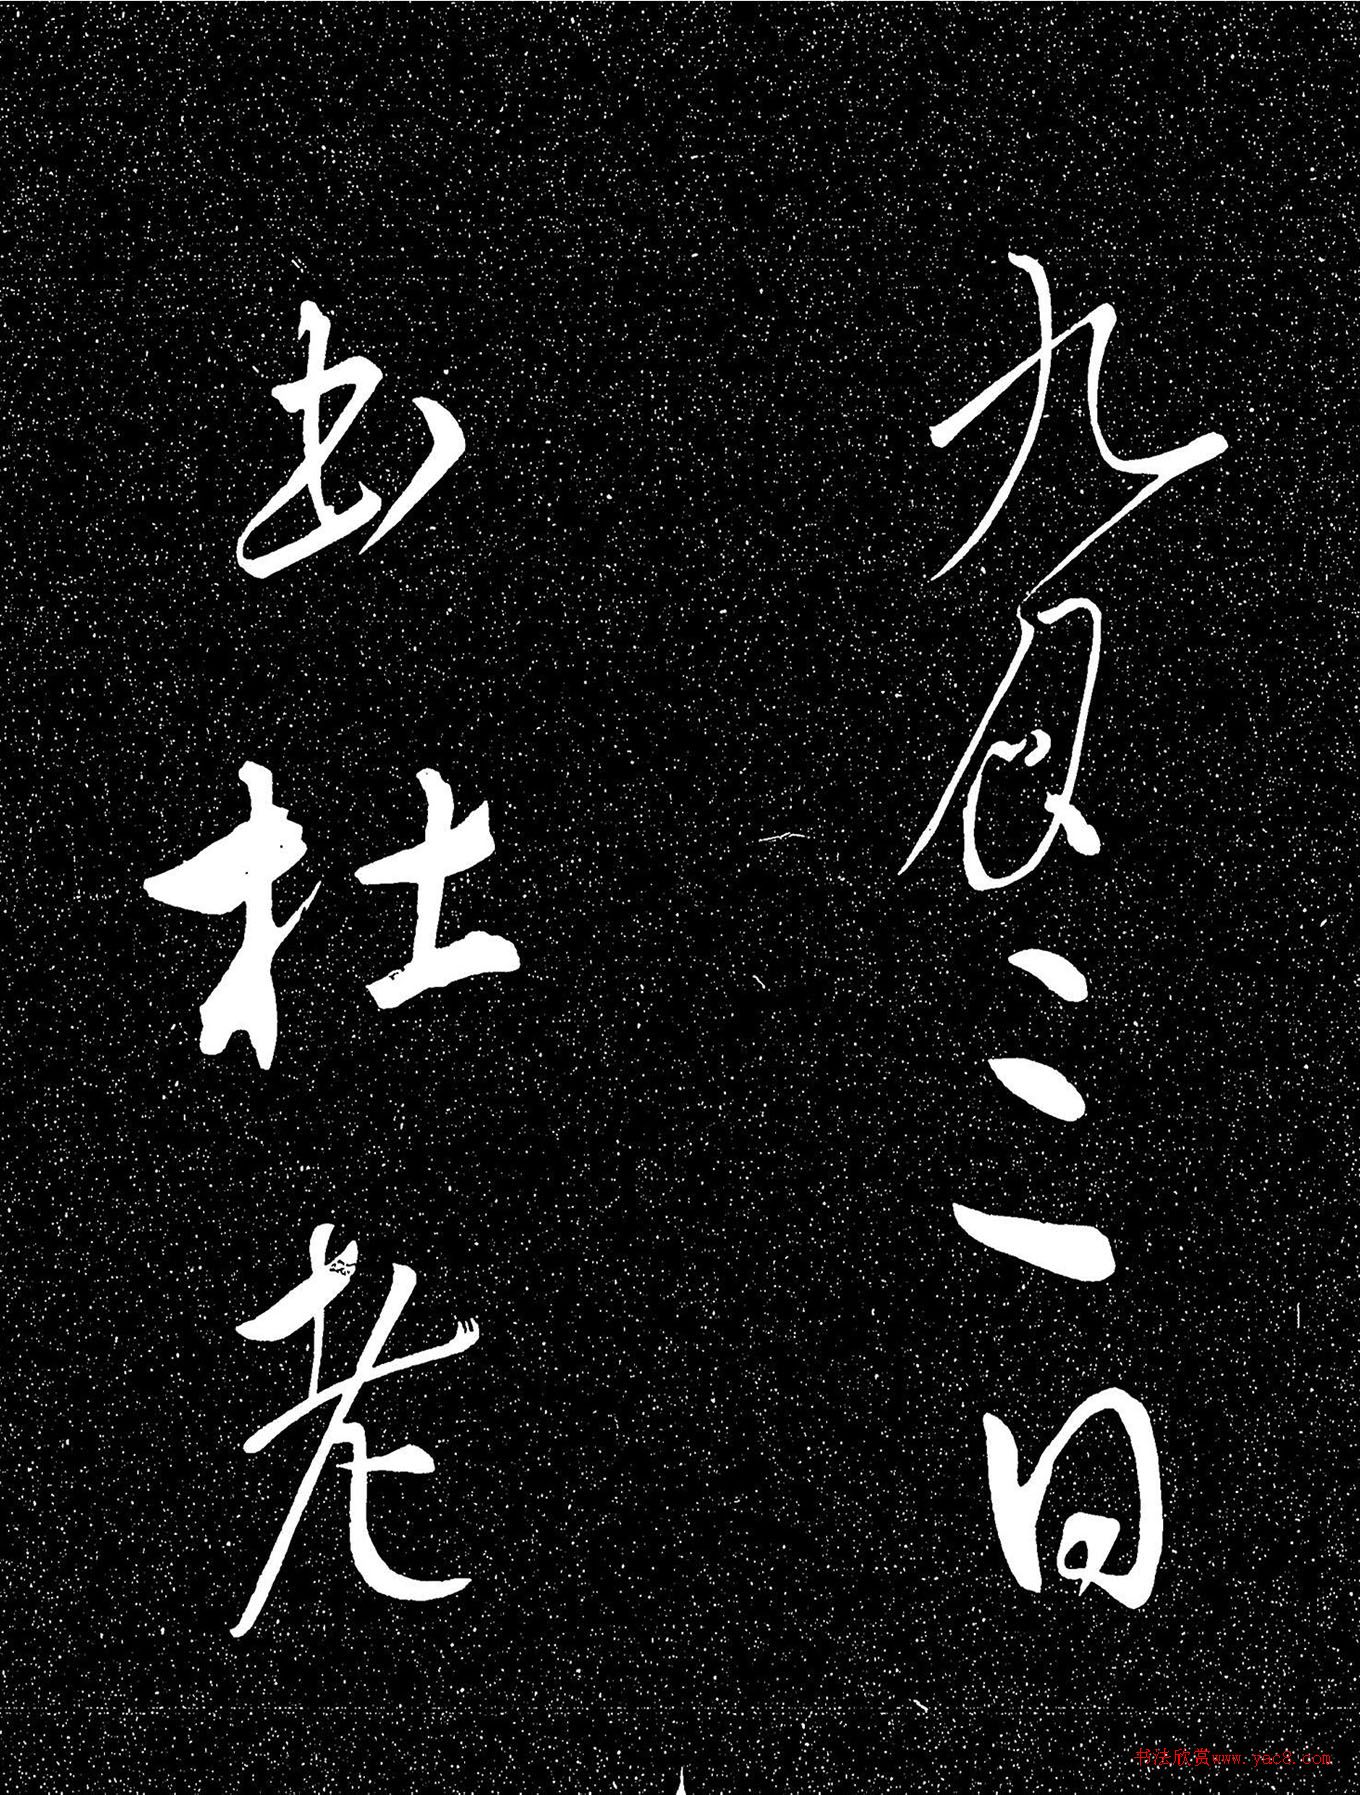 九月廿三日
書杜老
书法欣赏www.yac8.com